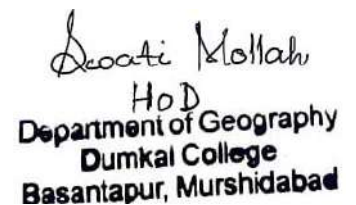 Swati Mollah
HoD
Department of Geography
Dumkal College
Basantapur, Murshidabad